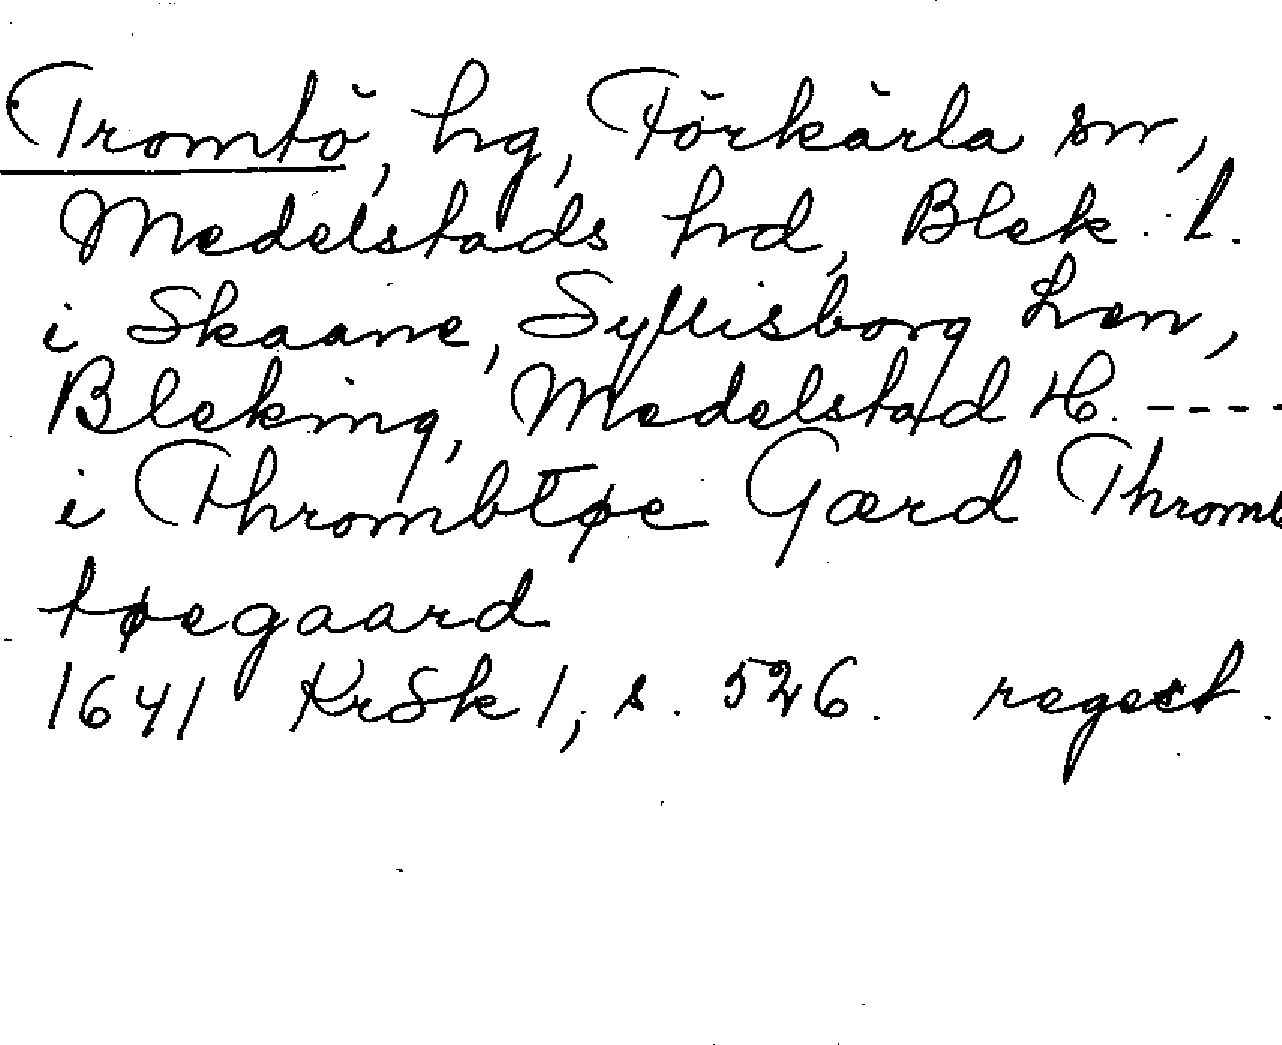 Tromtö, hg, Förkärla sn,
Medelstads hrd, Blek. l.
i Skaane, Syllisborg Læn,
Bleking, Medelstad H. ----
i Thrombtøe Gærd Thromb
tøegaard
1641 KrSk 1, s. 526. regest.